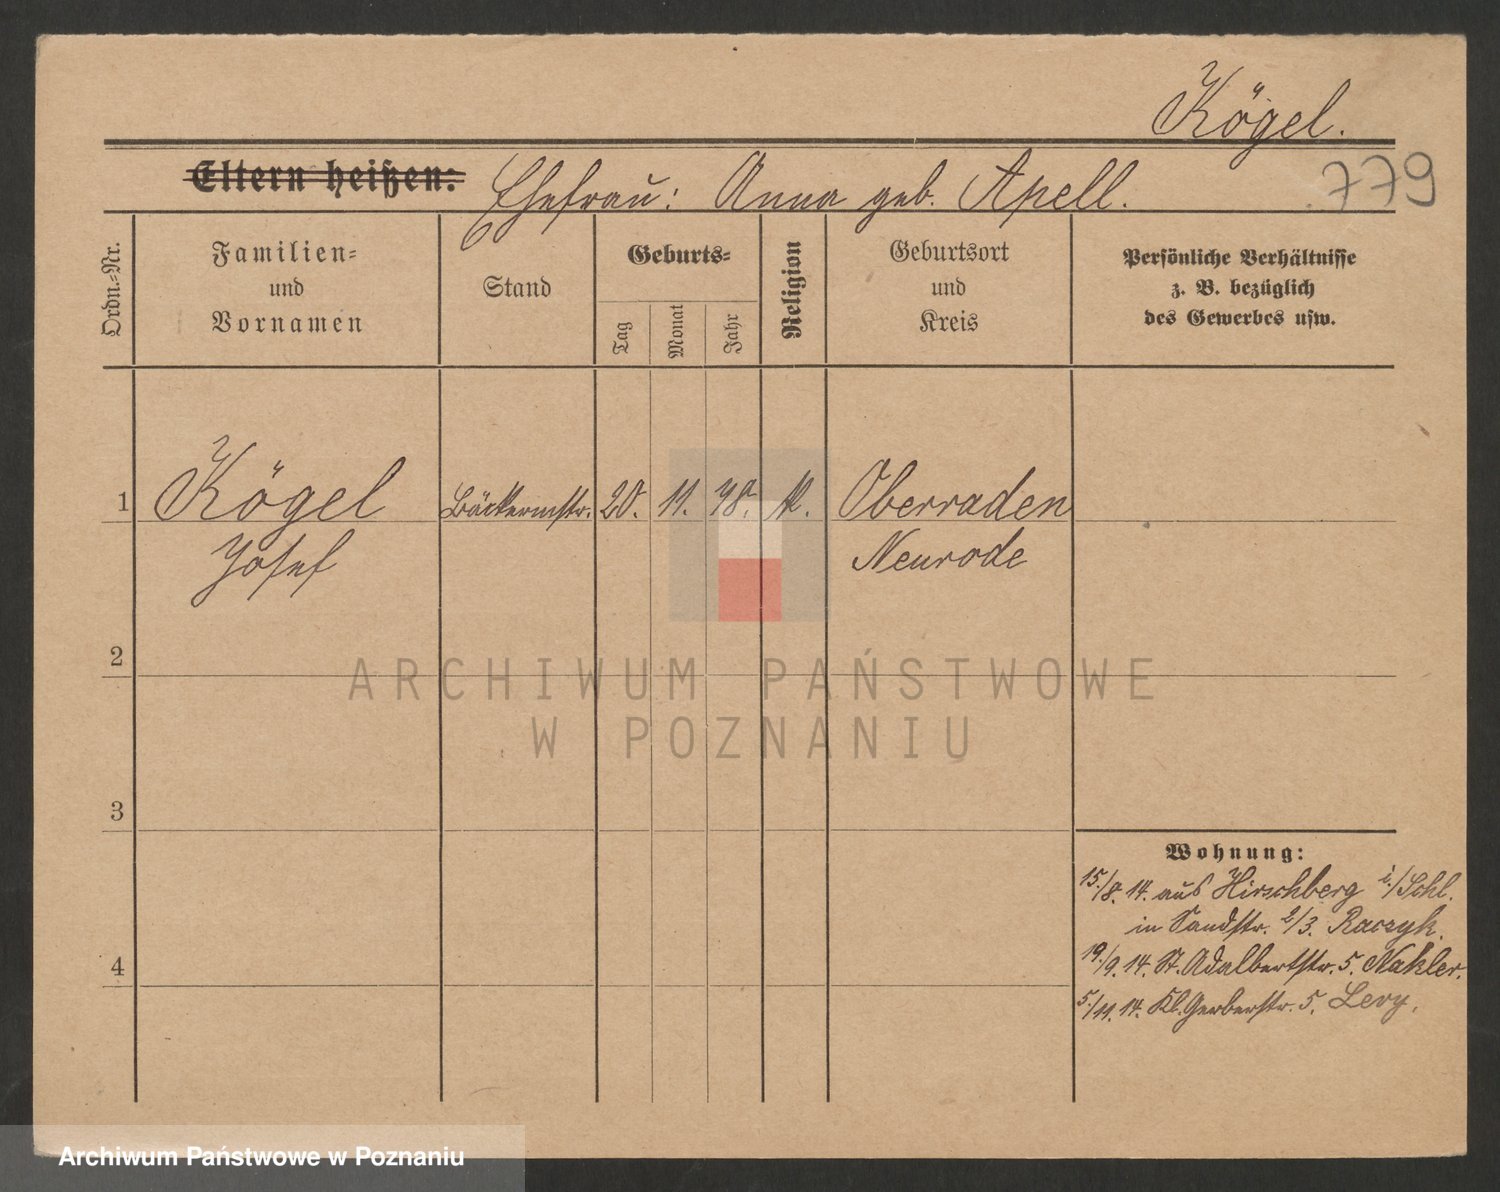 Kögel.
779
Eltern heißen:
Ehefrau: Anna geb. Apell.
Ordn.=Nr.
Familien=
und
Vornamen
Stand
Geburts=
Tag
Monat
Jahr
Religion
Geburtsort
und
Kreis
Persönliche Verhältnisse
z. B. bezüglich
des Gewerbes usw.
1
Kögel
Josef
Bäckermstr.
20.
11.
78.
k.
Oberraden
Neurode
2
ARCHIWUM PAŃSTWOWE
W POZNANIU
3
Wohnung:
15./8. 14. aus Hirschberg i./Schl.
in Sandstr. 2/3. Raczyk.
4
19./9. 14. St. Adalbertstr. 5. Nakler.
5./11. 14. Kl. Gerberstr. 5. Levy.
Archiwum Państwowe w Poznaniu